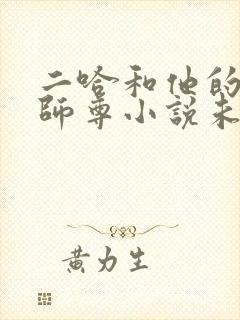 二哈和他的
師尊小說未
黃力生